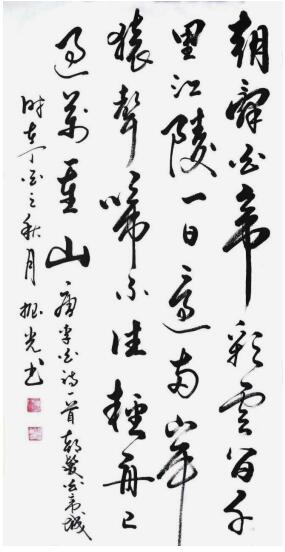 朝辭白帝彩雲间千
里江陵一日還两岸
猿聲啼不住輕舟已
过萬重山 唐李白诗一首朝發白帝城
时在丁酉之秋月 振光书